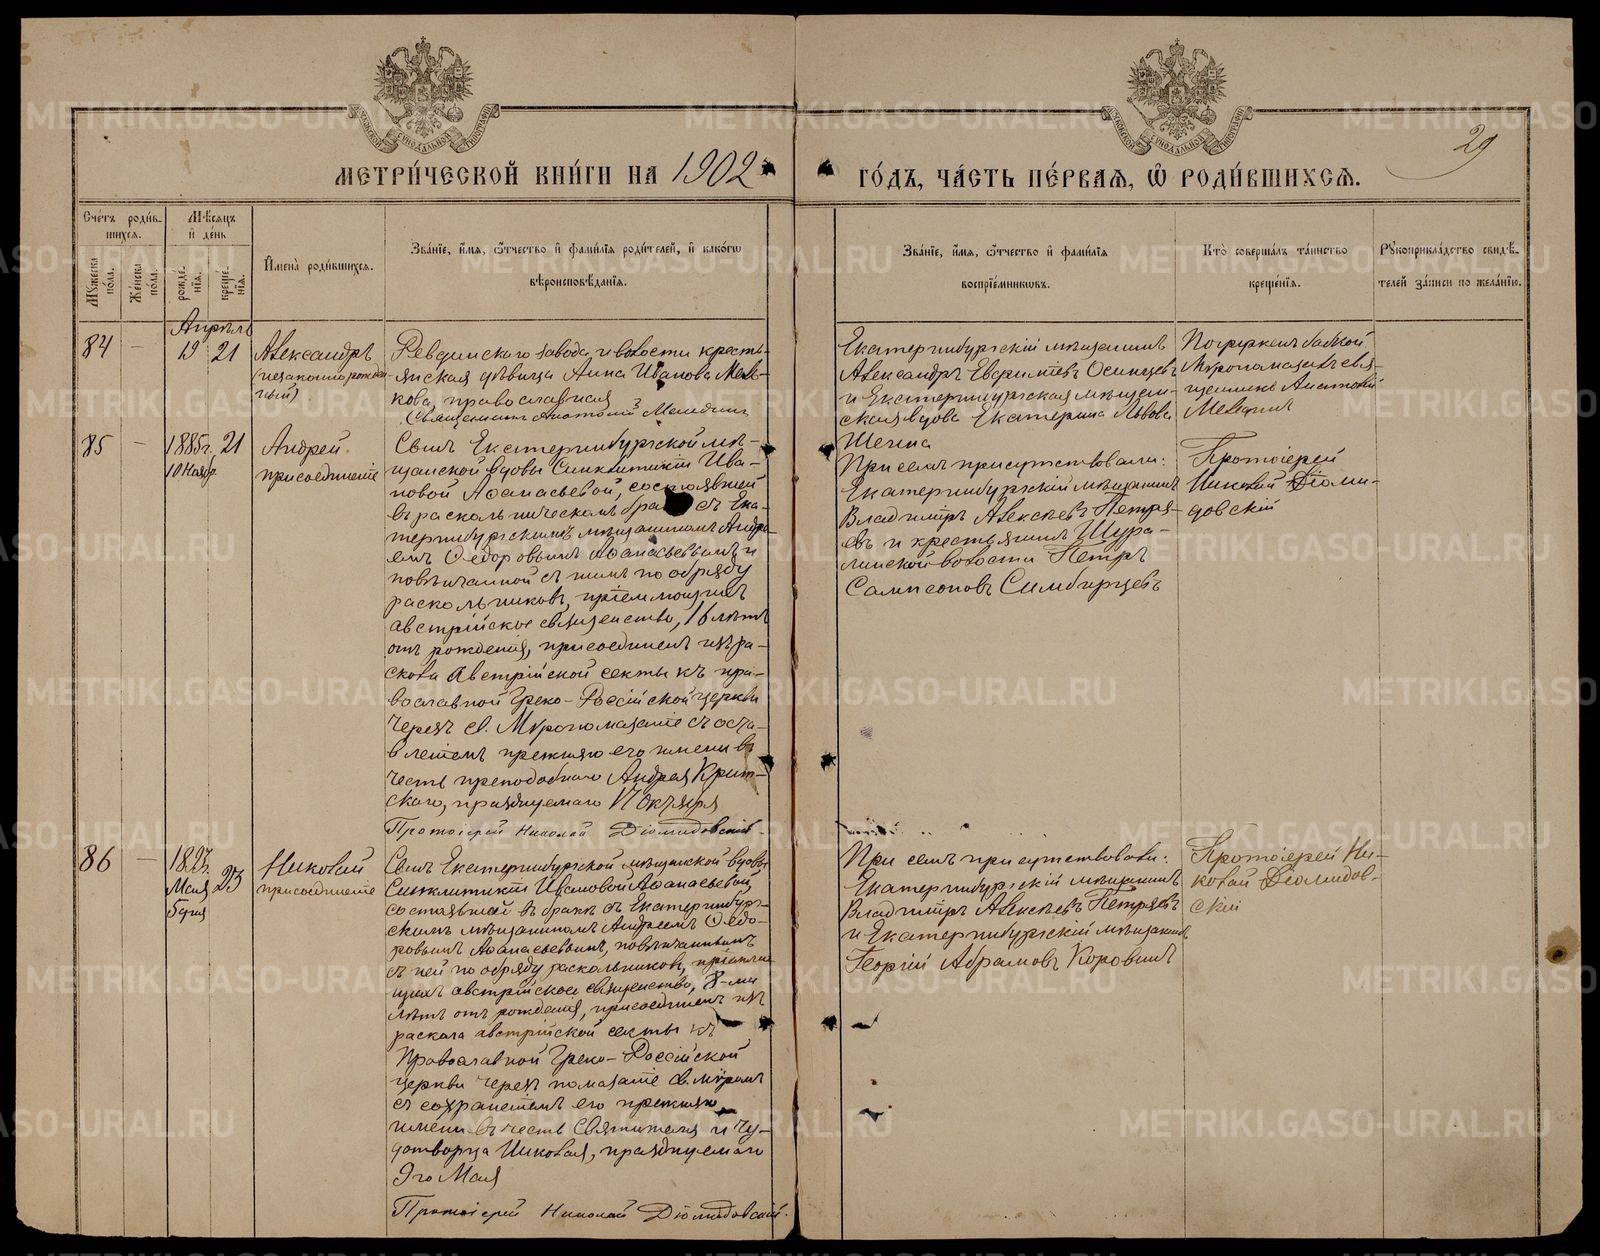 МЕТРИ́ЧЕСКОЙ КНИ́ГИ НА 1902
ГО́ДЪ, ЧА́СТЬ ПЕ́РВАѦ, Ѽ РОДИ́ВШИХСѦ.
29
Сче́тъ роди́в-
шихся.
Мѣ́сяцъ
и҆ де́нь
Мꙋ́жеска
по́ла.
Же́нска
по́ла.
рожде́-
нїѧ.
креще́-
нїѧ.
И҆мена̀ роди́вшихся.
Зва́нїе, и҆́мѧ, ѻ҆́тчество и҆ фами́лїѧ роди́телей, и҆ како́гѡ
вѣроисповѣ́данїѧ.
Зва́нїе, и҆́мѧ, ѻ҆́тчество и҆ фами́лїѧ
воспрїе́мникѡвъ.
Кто̀ соверша́лъ та́инство
креще́нїѧ.
Рꙋкоприкла́дство свидѣ́-
телей за́писи по жела́нїю.
Апрѣль
84 — 19 21
Александръ
(незаконнорожден-
ный)
Ревдинскаго завода и волости кресть-
янская дѣвица Анна Иванова Мель-
кова, православная
Священникъ Анатолій
Екатеринбургскій мѣщанинъ
Александръ Евфиміевъ Осинцевъ
и Екатеринбургская мѣщан-
ская вдова Екатерина Львова
Погруженъ бабкой.
Мѵропомазалъ свя-
щенникъ Анатолій
85 — 1885 г. 21
10 Ноябр.
Андрей
присоединеніе
Сынъ Екатеринбургской мѣ-
щанской вдовы Синклитикіи Ива-
новой Аѳанасьевой, состоявшей
въ раскольническомъ бракѣ съ Ека-
теринбургскимъ мѣщаниномъ Андре-
емъ Ѳедоровымъ Аѳанасьевымъ и
повѣнчанной съ нимъ по обряду
раскольниковъ, пріемлющихъ
австрійское священство, 16 лѣтъ
отъ рожденія, присоединенъ изъ ра-
скола Австрійской секты къ пра-
вославной Греко-Россійской церкви
чрезъ св. Мѵропомазаніе съ оста-
вленіемъ прежняго его имени въ
честь преподобнаго Андрея Крит-
скаго, празднуемаго 17 Октября
Протоіерей Николай Діомидовскій
При семъ присутствовали:
Екатеринбургскій мѣщанинъ
Владиміръ Алексѣевъ Петря-
евъ и крестьянинъ Шура-
линской волости Петръ
Сампсоновъ Симбирцевъ
Протоіерей
Николай Діоми-
довскій
86 — 23
Мая
Николай
присоединеніе
Сынъ Екатеринбургской мѣщанской вдовы
Синклитикіи Ивановой Аѳанасьевой,
состоявшей въ бракѣ съ Екатеринбург-
скимъ мѣщаниномъ Андреемъ Ѳедо-
ровымъ Аѳанасьевымъ, повѣнчаннымъ
съ ней по обряду раскольниковъ, пріемлю-
щихъ австрійское священство, 8-ми
лѣтъ отъ рожденія, присоединенъ изъ
раскола австрійской секты къ
Православной Греко-Россійской
церкви чрезъ помазаніе св. мѵромъ
съ сохраненіемъ его прежняго
имени въ честь Святителя и Чу-
дотворца Николая, празднуемаго
9го Мая
Протоіерей Николай Діомидовскій.
При семъ присутствовали:
Екатеринбургскій мѣщанинъ
Владиміръ Алексѣевъ Петряевъ
и Екатеринбургскій мѣщанинъ
Георгій Абрамовъ Коровинъ
Протоіерей Ни-
колай Діомидов-
скій
METRIKI.GASO-URAL.RU